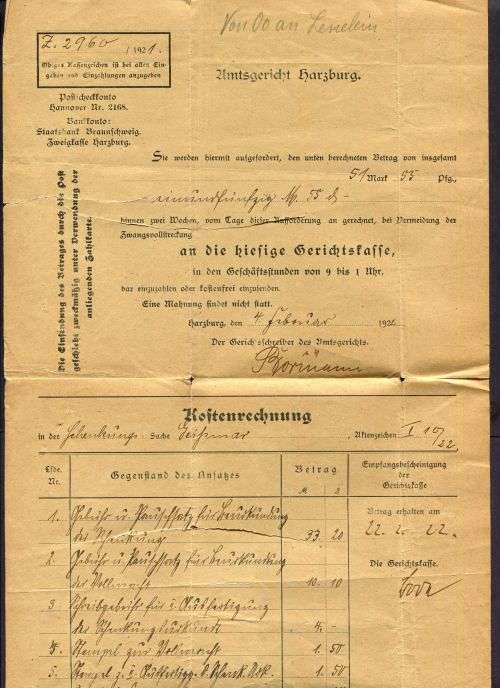 Z. 2960 / 1921.
Obiges Kassenzeichen ist bei allen Ein-
gaben und Einzahlungen anzugeben
Postscheckkonto
Hannover Nr. 2168.
Bankkonto:
Staatsbank Braunschweig.
Zweigkasse Harzburg.
Von Oo an
Amtsgericht Harzburg.
Die Einsendung des Betrages durch die Post
geschieht zweckmäßig unter Verwendung der
anliegenden Zahlkarte.
Sie werden hiermit aufgefordert, den unten berechneten Betrag von insgesamt
51 Mark 55 Pfg.,
einundfünfzig M. 55 d -
binnen zwei Wochen, vom Tage dieser Aufforderung an gerechnet, bei Vermeidung der
Zwangsvollstreckung
an die hiesige Gerichtskasse,
in den Geschäftsstunden von 9 bis 1 Uhr,
bar einzuzahlen oder kostenfrei einzusenden.
Eine Mahnung findet nicht statt.
Harzburg, den 4 Februar 192
Der Gerichtsschreiber des Amtsgerichts.
Bormann
Kostenrechnung
in der Schenkungs-Sache Geismar, Aktenzeichen I 10/22
Lfde. Nr. Gegenstand des Ansatzes Betrag Empfangsbescheinigung der Gerichtskasse
1. Gebühr u. Pauschsatz für Beurkundung
der Schenkung 33. 20
Betrag erhalten am
22. 22.
2 Gebühr u. Pauschsatz für Beurkundung
der Vollmacht 10. 10
Die Gerichtskasse.
3 Schreibgebühr für 2 Ausfertigung
der Schenkungsurkunde 4. -
4. Stempel zur Vollmacht 1. 50
5. Stempel z. 2 Ausfertigg. d. Schenk. Urk. 1. 50